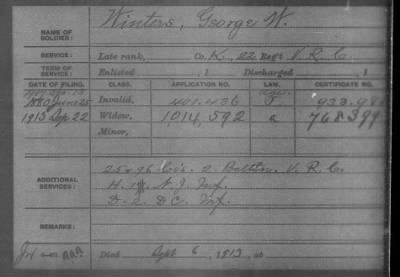 NAME OF SOLDIER: Winters, George W.
SERVICE: Late rank, Co. K, 22 Reg't V. R. C.
TERM OF SERVICE: Enlisted , 1 Discharged , 1
DATE OF FILING. CLASS. APPLICATION NO. LAW. CERTIFICATE NO.
1880 June 25 Invalid, 401.436
1913 Sep 22 Widow, 1,014,592 a 768399
Minor,
ADDITIONAL SERVICES: 25 & 96 Co's. 2. Battln. V. R. C.
N. J. Inf.
D. 2. D C. Inf.
REMARKS:
Died Sept 6, 1913, at